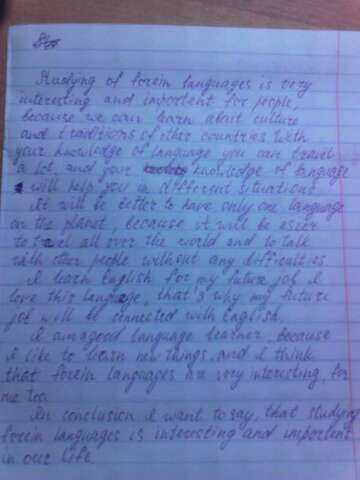 Studying of forein languages is very
interesting and important for people,
because we can learn about culture
and traditions of other countries. With
your knowledge of language you can travel
a lot, and your knowledge of language
will help you in different situations.
It will be better to have only one language
on the planet, because it will be easer
to travel all over the world and to talk
with other people without any difficulties.
I learn English for my future job. I
love this language, that's why my future
job will be connected with English.
I am a good language learner, because
I like to learn new things, and I think
that forein languages are very interesting, for
me too.
In conclusion I want to say, that studying
forein languages is interesting and important
in our life.